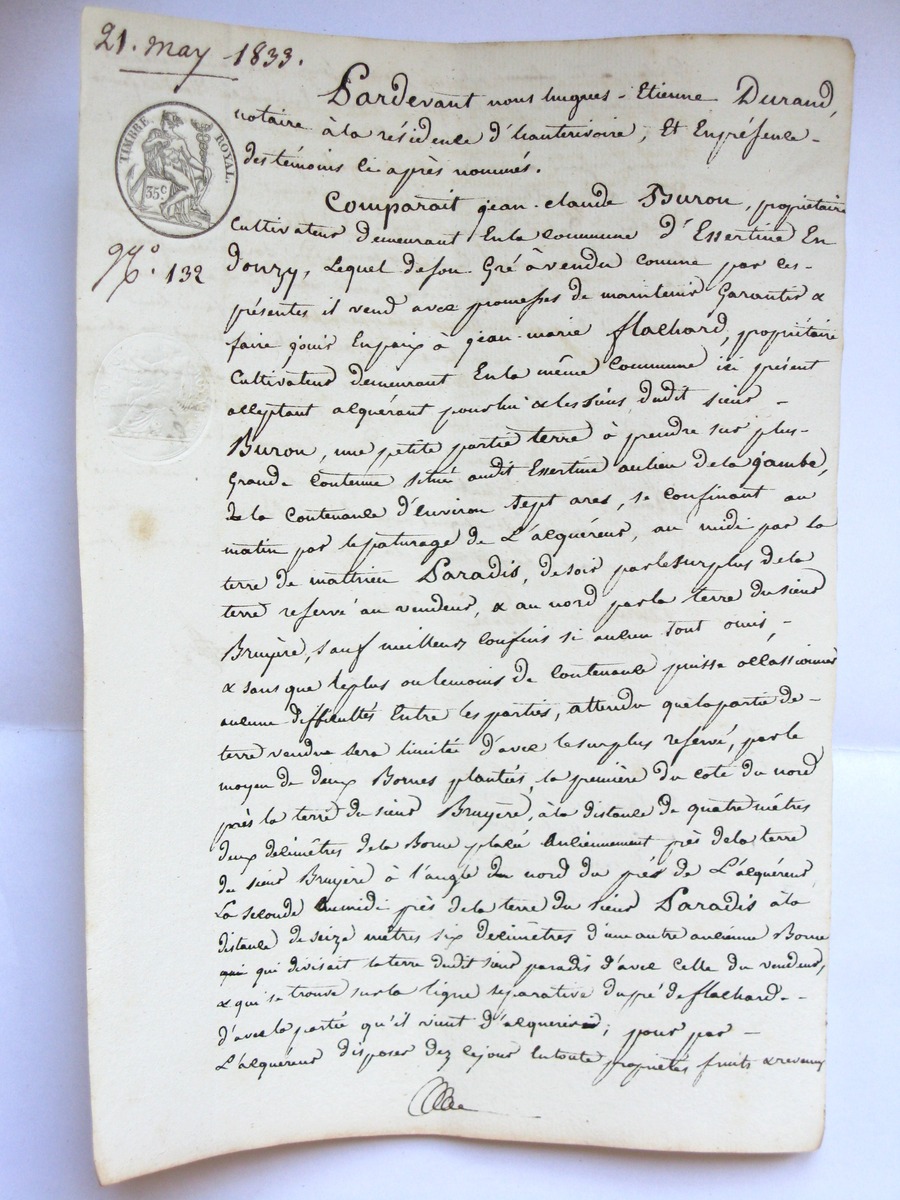 21. may 1833.
TIMBRE ROYAL.
35 c
N.º 132
Pardevant nous hugues-Etienne Durand,
notaire à la résidence d'hauterivoire, Et En présence
des témoins ci après nommés.
Comparait jean-claude Buron, propriétaire
Cultivateur demeurant En la commune d'Essertine En
donzy, Lequel de son Gré à vendu comme par ces
présentes il vend avec promesses de maintenir Garantir &
faire jouir En paix à jean-marie flachard, propriétaire
Cultivateur demeurant En la même commune ici présent
acceptant acquérant pour lui & les siens dudit sieur
Buron, une petite partie terre à prendre sur plus
Grande contenue situé audit Essertine au lieu de la jambe,
de la contenance d'Environ sept ares, se confinant au
matin par le paturage de L'acquéreur, au midi par la
terre de matthieu Paradis, de soir par le surplus de la
terre reservé au vendeur, & au nord par la terre du sieur
Bruyère, sauf meilleurs confins si aucun sont omis,
& sans que le plus ou le moins de contenance puisse occassionner
aucune difficultés Entre les parties, attendu que la partie de
terre vendue sera limitée d'avec le surplus reservé, par le
moyen de deux Bornes plantées, la première du coté du nord
près la terre du sieur Bruyère, à la distance de quatre mètres
deux decimètres de la Borne placée Anciennement près de la terre
du sieur Bruyère à l'angle du nord du près de L'acquéreur,
La seconde Au midi près de la terre du sieur Paradis à la
distance de seize mètres six decimètres d'une autre ancienne Borne
qui divisait la terre dudit sieur paradis d'avec celle du vendeur,
& qui se trouve sur la ligne separative du pré de flachard
d'avec la partie qu'il vient d'acquerir; pour par
L'acquéreur disposer dez ce jour En toute propriétés fruits & revenus